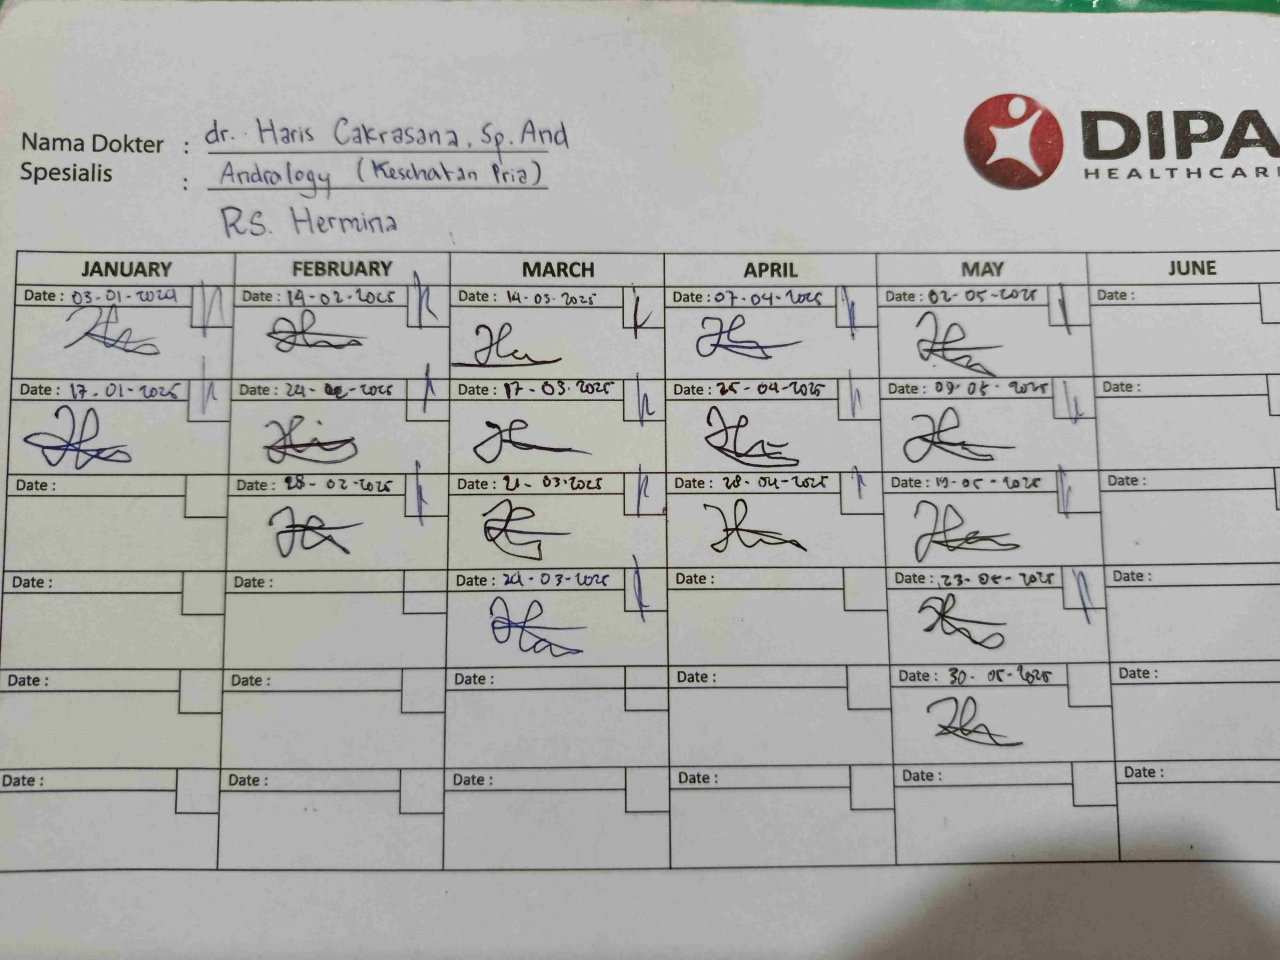 Nama Dokter : dr. Haris Cakrasana, Sp. And
Spesialis : Andralogy (Kesehatan Pria)
RS. Hermina
DIPA
HEALTHCAR
JANUARY FEBRUARY MARCH APRIL MAY JUNE
Date : 03-01-2029 Date : 14-02-2025 Date : 14-03-2025 Date : 07-04-2025 Date : 02-05-2025 Date :
Date : 17-01-2025 Date : 24-02-2025 Date : 17-03-2025 Date : 25-04-2025 Date : 09-05-2025 Date :
Date : Date : 28-02-2025 Date : 21-03-2025 Date : 28-04-2025 Date : 19-05-2025 Date :
Date : Date : Date : 24-03-2025 Date : Date : 23-05-2025 Date :
Date : Date : Date : Date : Date : 30-05-2025 Date :
Date : Date : Date : Date : Date : Date :